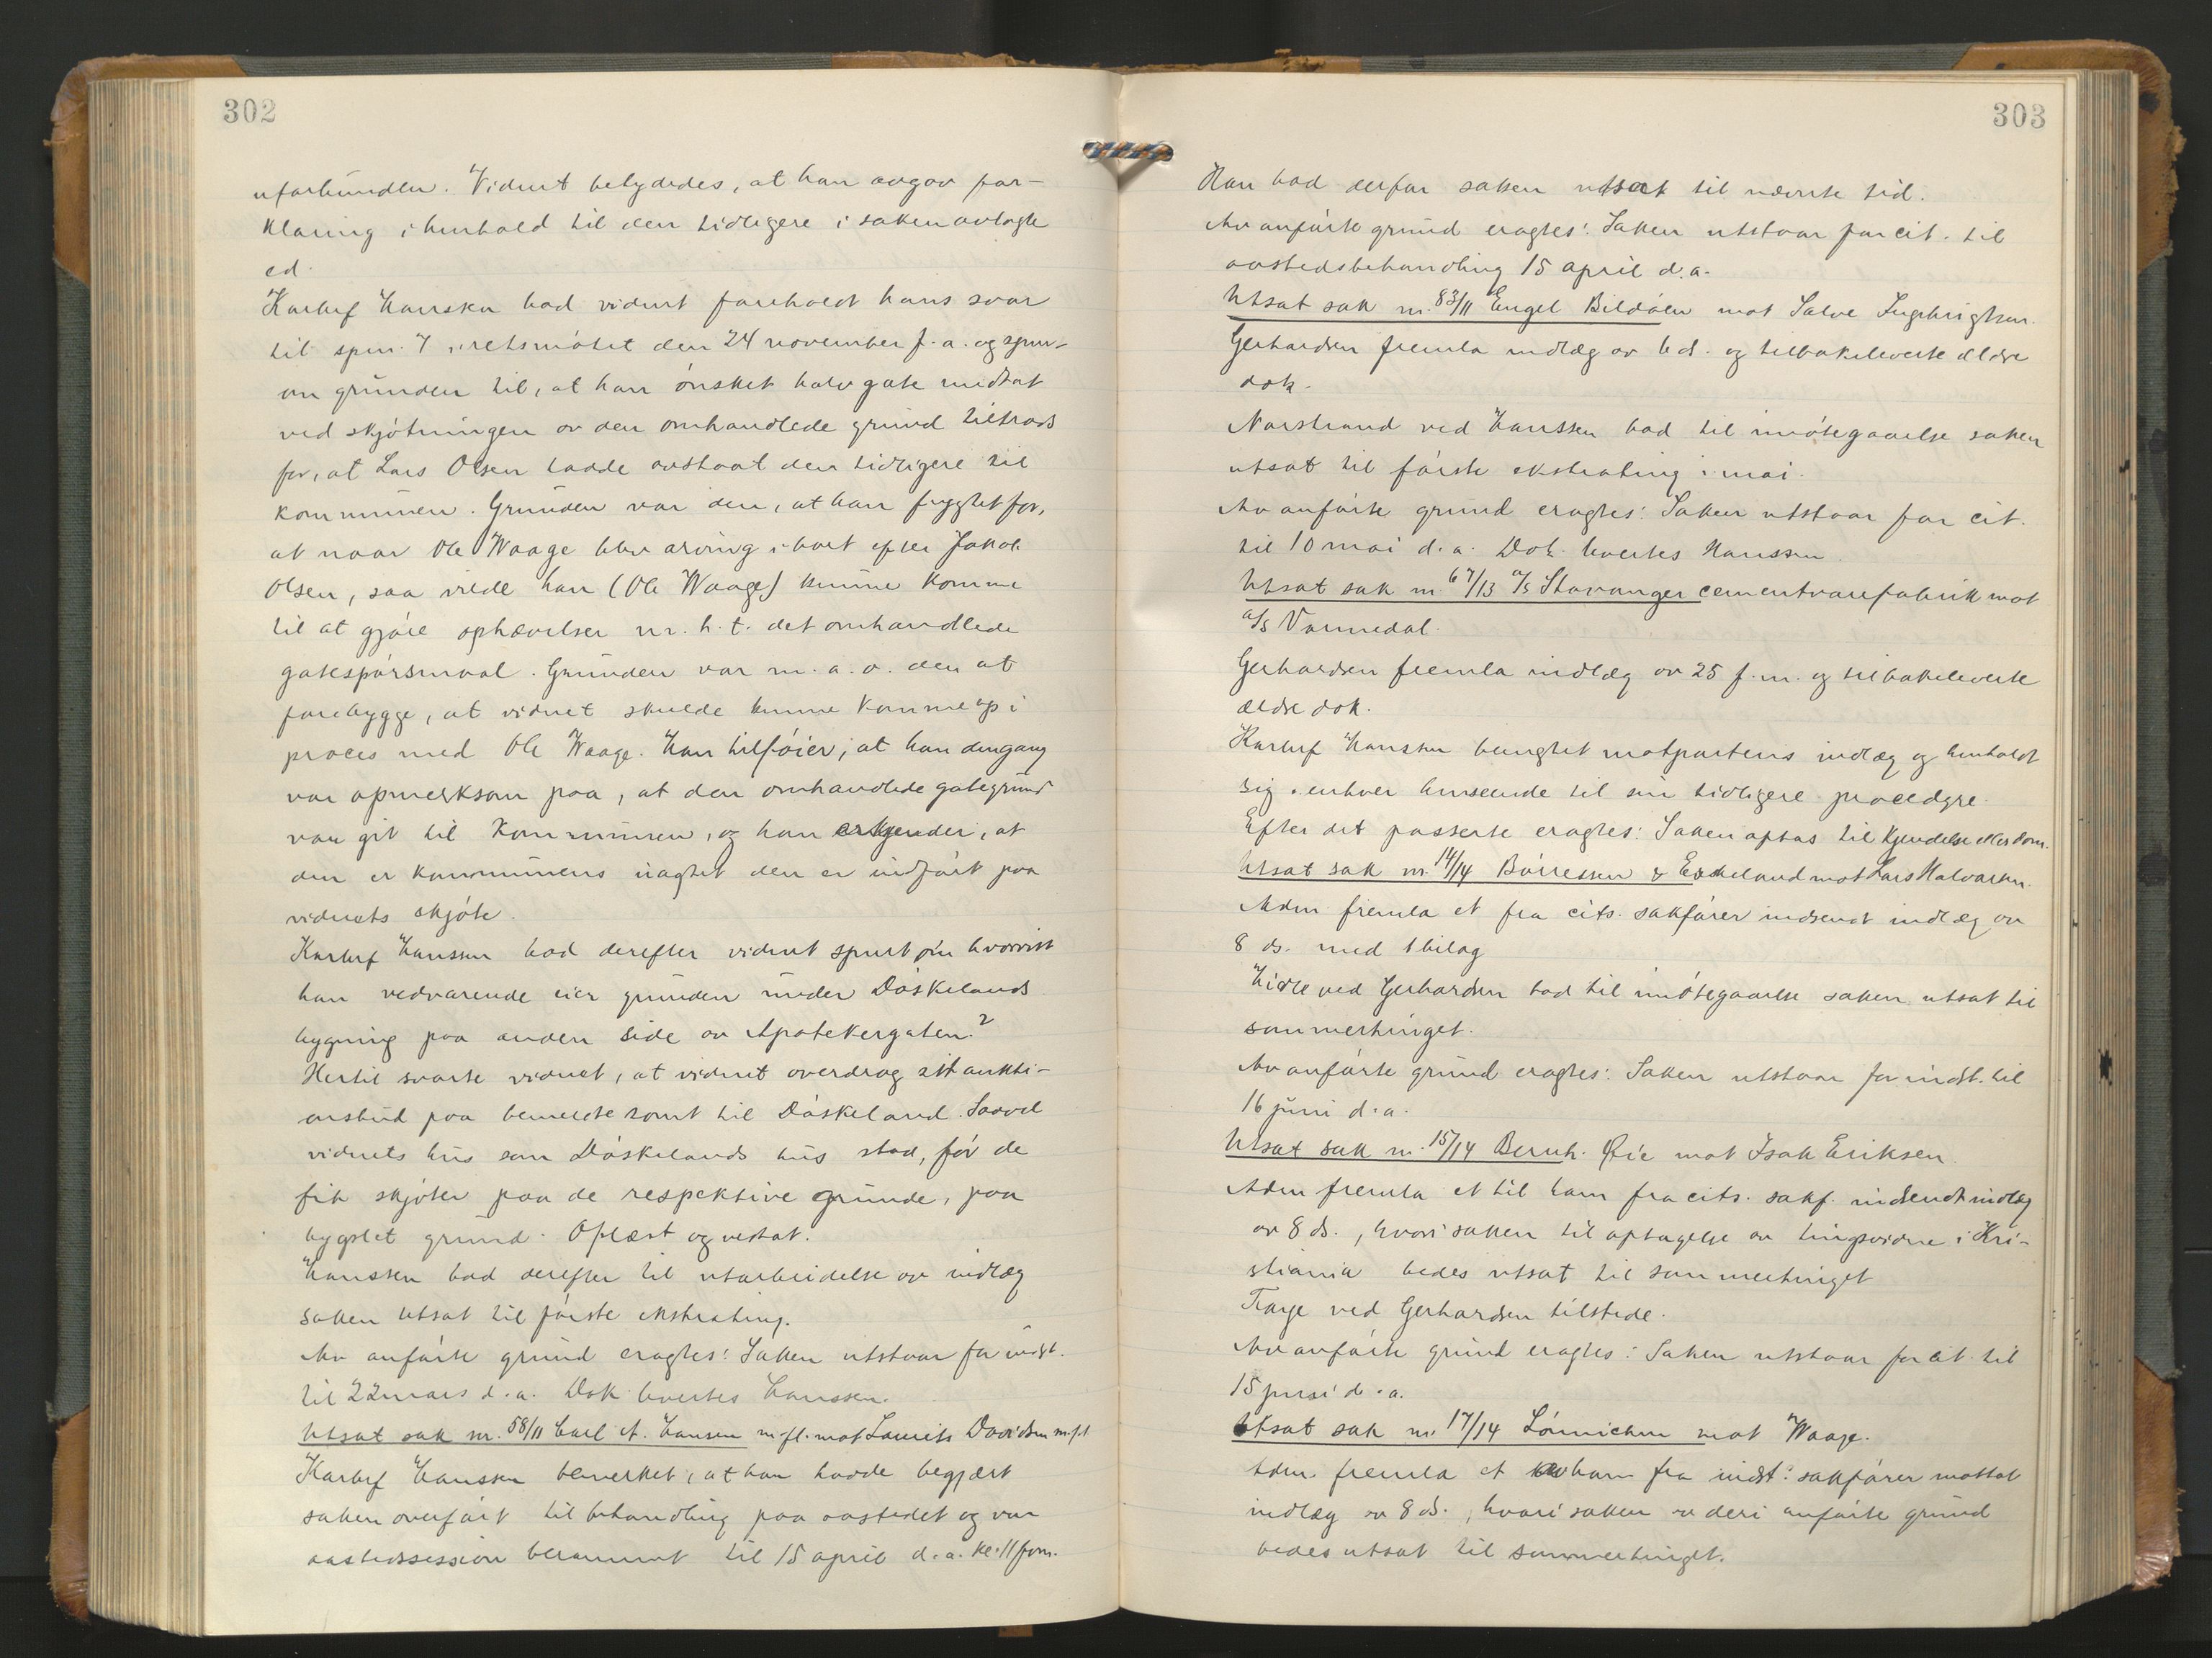 302
uforbunden. Vidnet betydedes, at han avgav for-
klaring i henhold til den tidligere i saken avlagte
ed.
Karluf Hanssen bad vidnet foreholdt hans svar
til spm. 7 i retsmøtet den 24 november f. a. og spm.
om grunden til, at han ønsket halv gate medtat
ved skjøtningen av den omhandlede grund tiltrods
for, at Lars Olsen hadde avstaat den tidligere til
kommunen. Grunden var den, at han frygtet for,
at naar Ole Waage blev arving i bort efter Jakob
Olsen, saa vilde han (Ole Waage) kunne komme
til at gjøre ophævelser m. h. t. det omhandlede
gatespørsmaal. Grunden var m. a. o. den at
forebygge, at vidnet skulde kunne komme op i
proces med Ole Waage. Han tilføier, at han dengang
var opmerksom paa, at den omhandlede gategrund
var git til kommunen, og han erkjender, at
den er kommunens uagtet den er indført paa
vidnets skjøte.
Karluf Hanssen bad derefter vidnet spurt om hvorvidt
han vedvarende eier grunden under Døskelands
bygning paa anden side av Apotekergaten?
Hertil svarte vidnet, at vidnet overdrog sit aukti-
onsbud paa bemeldte tomt til Døskeland. Saavel
vidnets hus som Døskelands hus stod, før de
fik skjøter paa de respektive grunde, paa
bygslet grund. Oplæst og vedtat.
Hanssen bad derefter til utarbeidelse av indlæg
saken utsat til første ekstrating.
Av anførte grund eragtes: Saken utstaar for indst.
til 22 mars d. a. Dok. leveres Hanssen.
Utsat sak nr. 58/11 Carl A. Hansen m. fl. mot Laurits Davidsen m. fl.
Karluf Hanssen bemerket, at han hadde begjært
saken overført til behandling paa aastedet og var
aastedssession berammet til 15 april d. a. kl. 11 fom.
303
Han bad derfor saken utsat til nævnte tid.
Av anførte grund eragtes: Saken utstaar for cit. til
aastedsbehandling 15 april d. a.
Utsat sak nr. 83/11 Engel Bildøen mot Salve Ingebrigtsen.
Gerhardsen fremla indlæg av 6 ds. og tilbakeleverte ældre
dok.
Norstrand ved Hanssen bad til imøtegaaelse saken
utsat til første ekstrating i mai.
Av anførte grund eragtes: Saken utstaar for cit.
til 10 mai d. a. Dok. leveres Hanssen.
Utsat sak nr. 67/13 a/s Stavanger cementvarefabrik mot
a/s Varmedal.
Gerhardsen fremla indlæg av 25 f. m. og tilbakeleverte
ældre dok.
Karluf Hanssen benegtet motpartens indlæg og henholdt
sig i enhver henseende til sin tidligere procedyre.
Efter det passerte eragtes: Saken optas til kjendelse eller dom.
Utsat sak nr. 14/14 Børresen & Eskeland mot Lars Halvorsen.
Adm. fremla et fra cits. sakfører indsendt indlæg av
8 ds. med 1 bilag
Hidle ved Gerhardsen bad til imøtegaaelse saken utsat til
sommertinget.
Av anførte grund eragtes: Saken utstaar for indst. til
16 juni d. a.
Utsat sak nr. 15/14 Bernh. Øie mot Isak Eriksen.
Adm. fremla et til ham fra cits. sakf. indsendt indlæg
av 8 ds., hvori saken til optagelse av tingsvidne i Kri-
stiania bedes utsat til sommertinget
Tarje ved Gerhardsen tilstede.
Av anførte grund eragtes: Saken utstaar for cit. til
15 juni d. a.
Utsat sak nr. 17/14 Lønnichen mot Waage.
Adm. fremla et av ham fra indst: sakfører mottat
indlæg av 8 ds., hvori saken av deri anførte grund
bedes utsat til sommertinget.